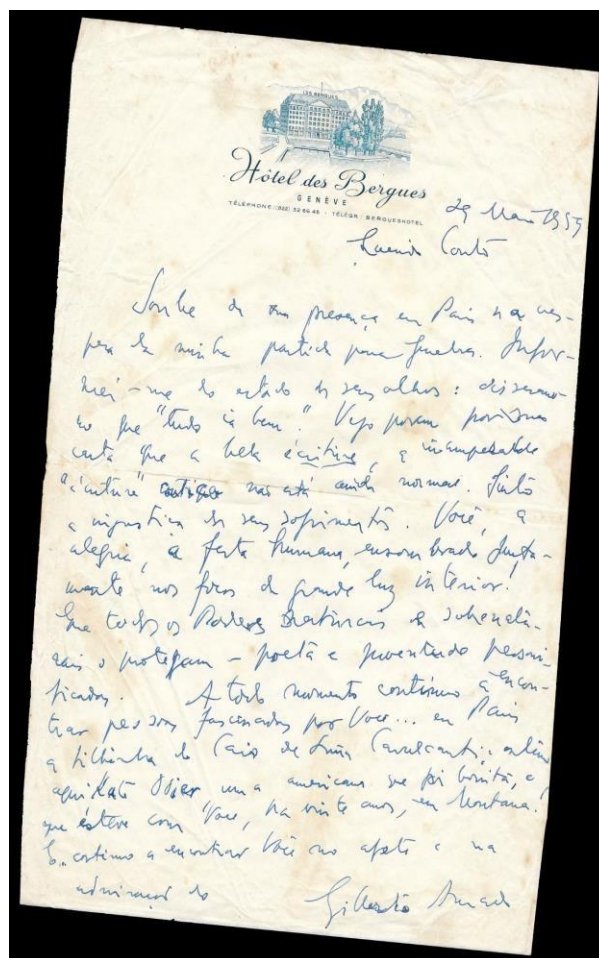 LES BERGUES
Hôtel des Bergues
GENÈVE
TÉLÉPHONE (022) 32 66 45 - TÉLÉGR.: BERGUESHOTEL
29 Maio 1959
Querido Couto
Soube de sua presença em Paris na ves-
pera da minha partida para Genebra. Infor-
mei-me do estado de seus olhos: disseram-
me que "tudo ia bem." Vejo porem por sua
carta que a bela écriture, a incomparable
"écriture" não está ainda normal. Sinto
a injustiça de seus sofrimentos. Você, a
alegria, a festa humana, ensombrado justa-
mente nos focos de grande luz interior!
Que todos os Poderes e sobrenatu-
rais o protejam – poeta e juventude personi-
ficados. A todo momento continuo a encon-
trar pessoas fascinadas por Você... em Paris
a filhinha do Caio de Cavalcanti;
aqui Kate uma americana que foi bonita, e
que esteve com Você, ha vinte anos, em Montana.
E.. continuo a encontrar Você no afeto e na
admiração do
Gilberto Amado